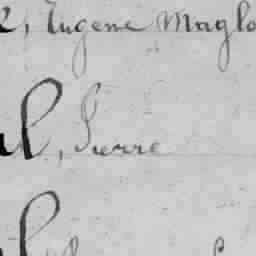 , Eugene Maglo
al, Pierre